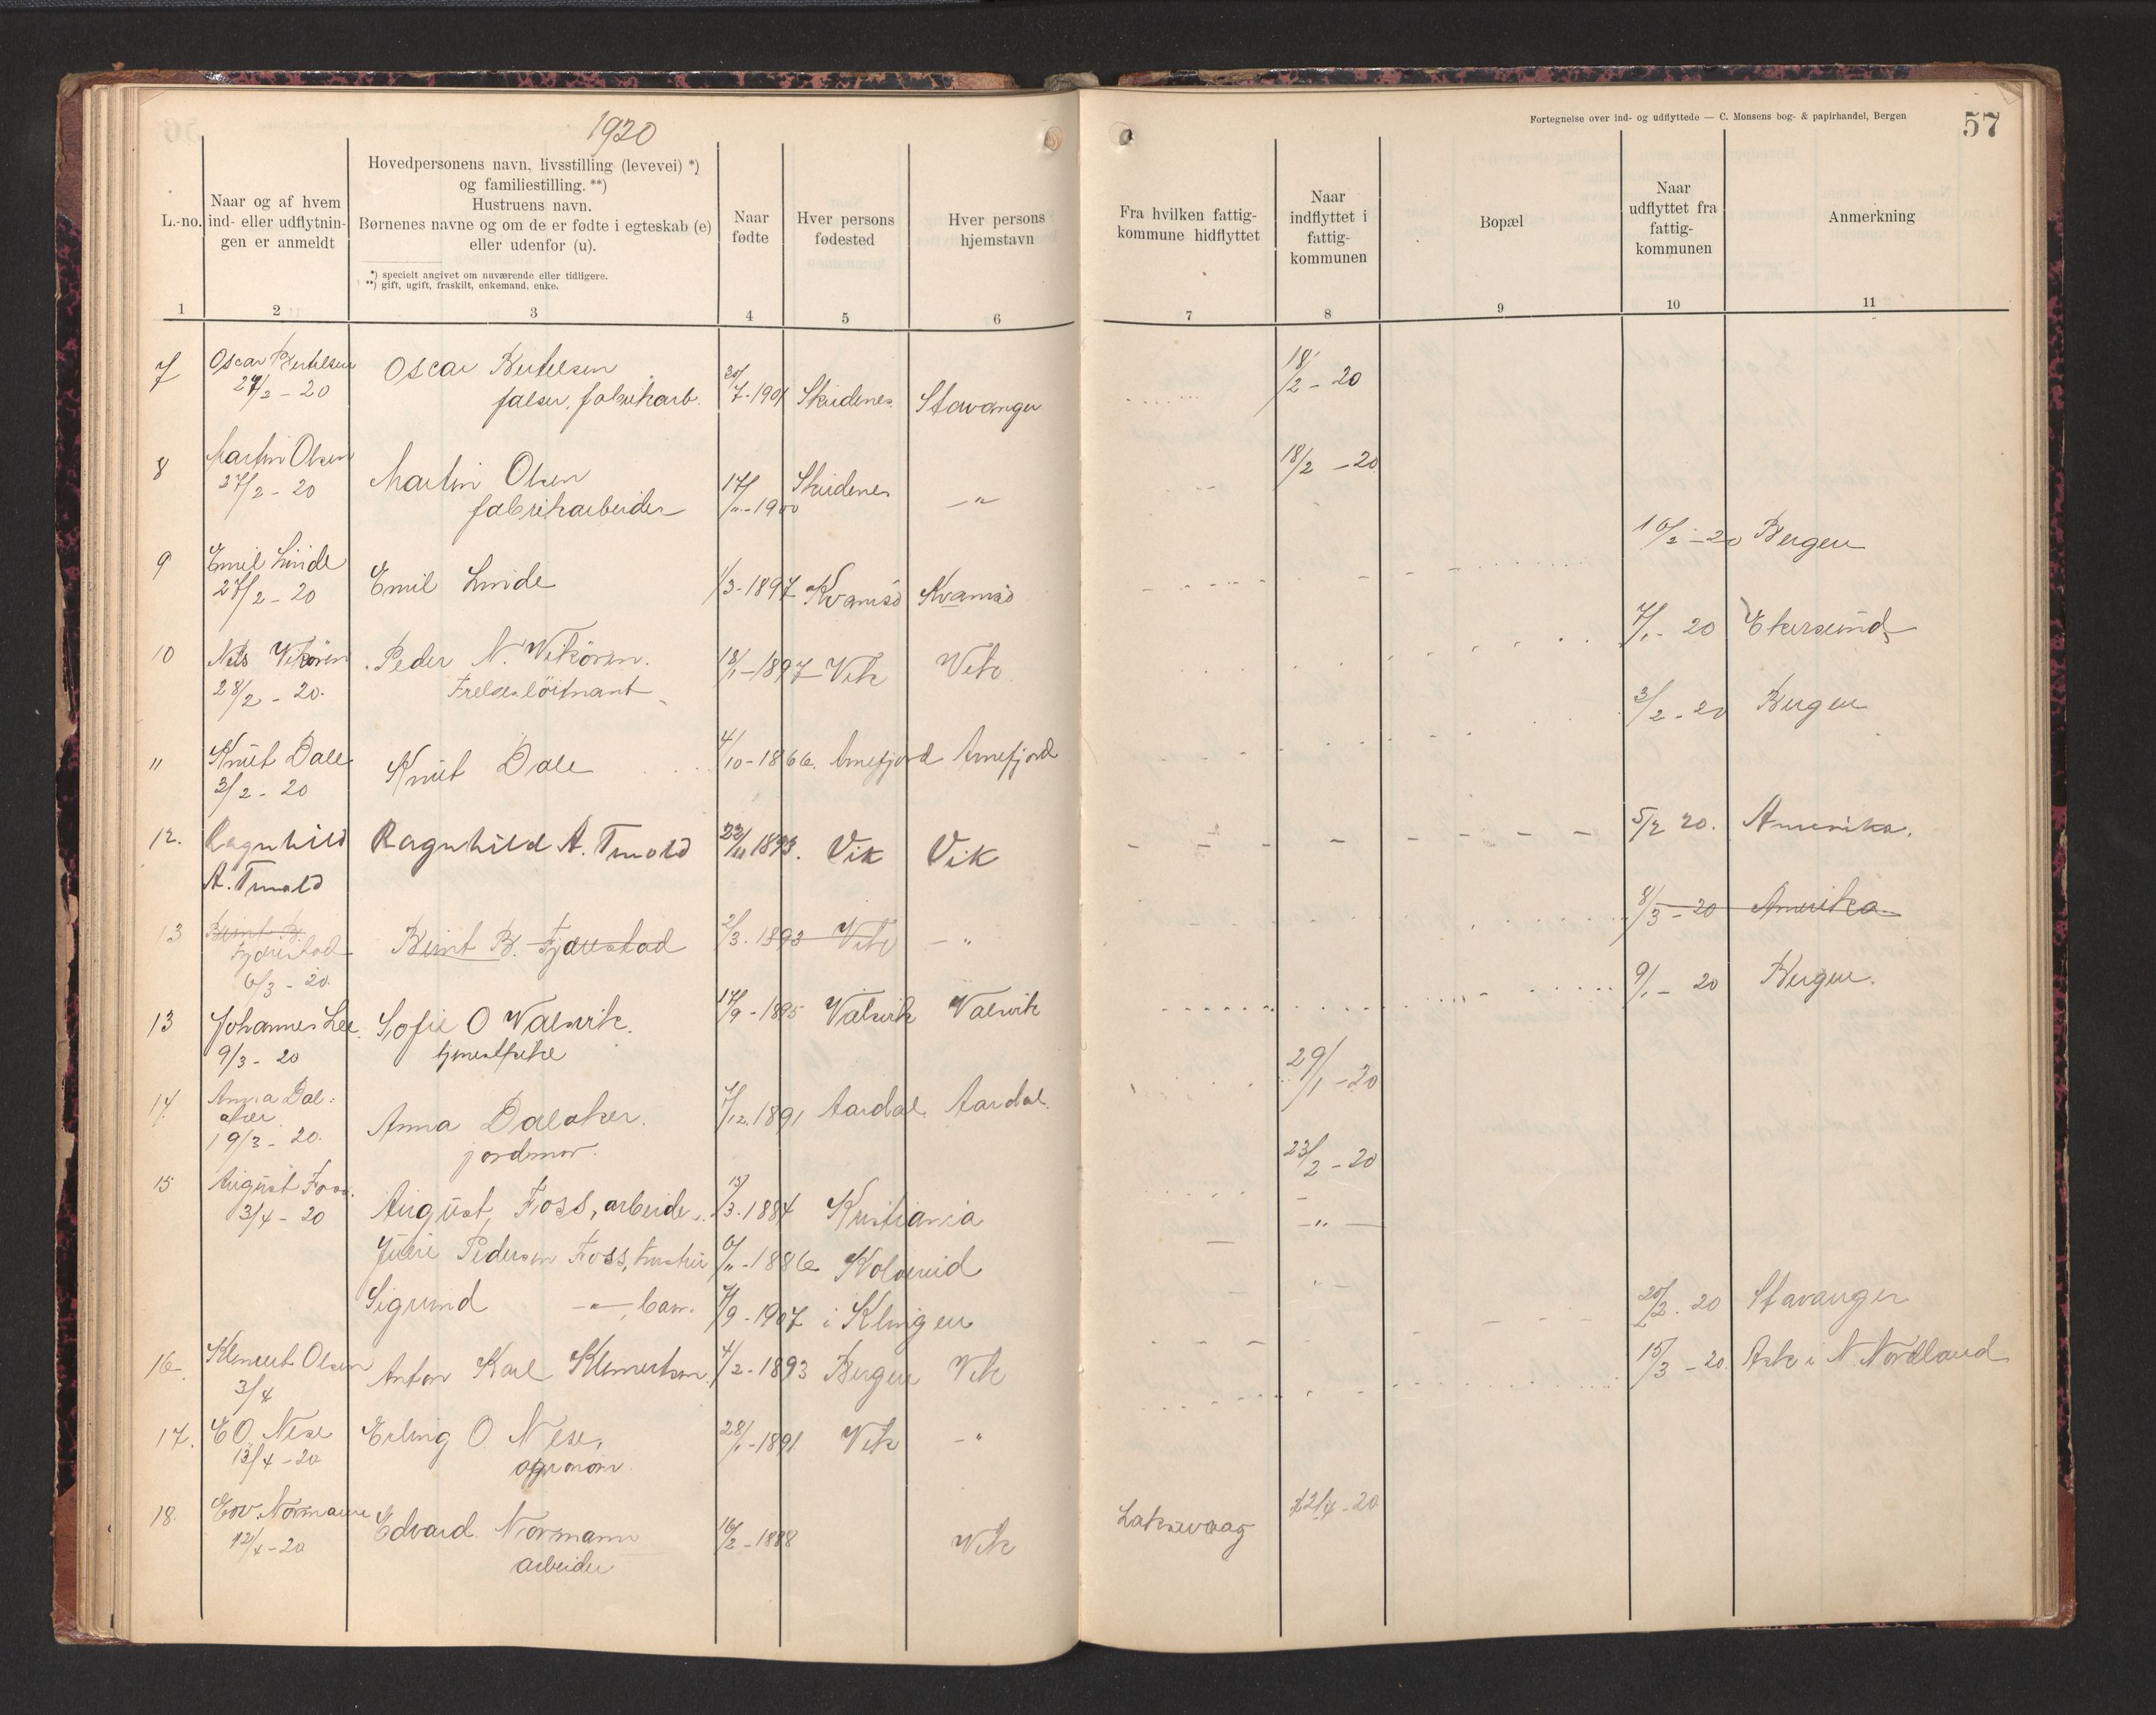 1920
Fortegnelse over ind- og udflyttede — C. Monsens bog- & papirhandel, Bergen
57
L.-no.
Naar og af hvem
ind- eller udflytnin-
gen er anmeldt
Hovedpersonens navn, livsstilling (levevei) *)
og familiestilling. **)
Hustruens navn.
Børnenes navne og om de er fødte i egteskab (e)
eller udenfor (u).
*) specielt angivet om nuværende eller tidligere.
**) gift, ugift, fraskilt, enkemand, enke.
Naar
fødte
Hver persons
fødested
Hver persons
hjemstavn
Fra hvilken fattig-
kommune hidflyttet
Naar
indflyttet i
fattig-
kommunen
Bopæl
Naar
udflyttet fra
fattig-
kommunen
Anmerkning
1 2 3 4 5 6 7 8 9 10 11
7 Oscar Bertelsen Oscar Bertelsen 18/2 - 20
27/2 - 20 falser, fabrikarb. 7-1901 Skudenes Stavanger
8 Martin Olsen Martin Olsen 17/11-1900 Skudenes - " 18/2 - 20
27/2 - 20 fabrikarbeider
9 Emil Linde Emil Linde 1/3-1897 Kvamsö Kvamsö 16/2 - 20 Bergen
27/2 - 20
10 Nils Vikören Peder N. Vikören. 18/1-1897 Vik Vik 7/1 - 20 Ekersund
28/2 - 20. Frelseslöitnant
" Knut Dale Knut Dale 4/10-1866. Arnefjord Arnefjord 3/2 - 20 Bergen
3/2 - 20
12. Ragnhild Ragnhild A. Tmold 22/11 1893. Vik Vik 5/2 20. Amerika.
A. Tmold
13 Bernt B. Bernt B. Fjærestad 2/3. 1893 Vik - " 8/3 - 20 Amerika
Fjærestad
6/3 - 20.
13 Johannes Lee Sofie O Valsvik. 17/9-1895 Valsvik Valsvik 9/1 - 20 Bergen.
9/3 - 20
14. Anna Dal- Anna Dalaker. 7/12.1891 Aardal. Aardal. 29/1 - 20
aker
19/3 - 20. jordmor.
15 August Foss. August Foss, arbeider. 15/3-1884 Kristiania 23/2 - 20
3/4 - 20
Julie Pedersen Foss, hustru 6/11-1886 Kolvereid - " -
Sigurd - " - barn. 7/9-1907 i Klingen " -
16. Klemert Olsen Anton Karl Klemertsen. 4/2-1893 Bergen Vik 20/2. 20 Stavanger
3/4
17. E O. Nese Erling O. Nese, 28/1-1891 Vik - " 15/3 - 20. Ask i N. Nordland
13/4 - 20 agronom.
18. Edv. Normann Edvard Normann 16/2-1888 Vik Laksevaag 12/4 - 20
12/4 - 20 arbeider